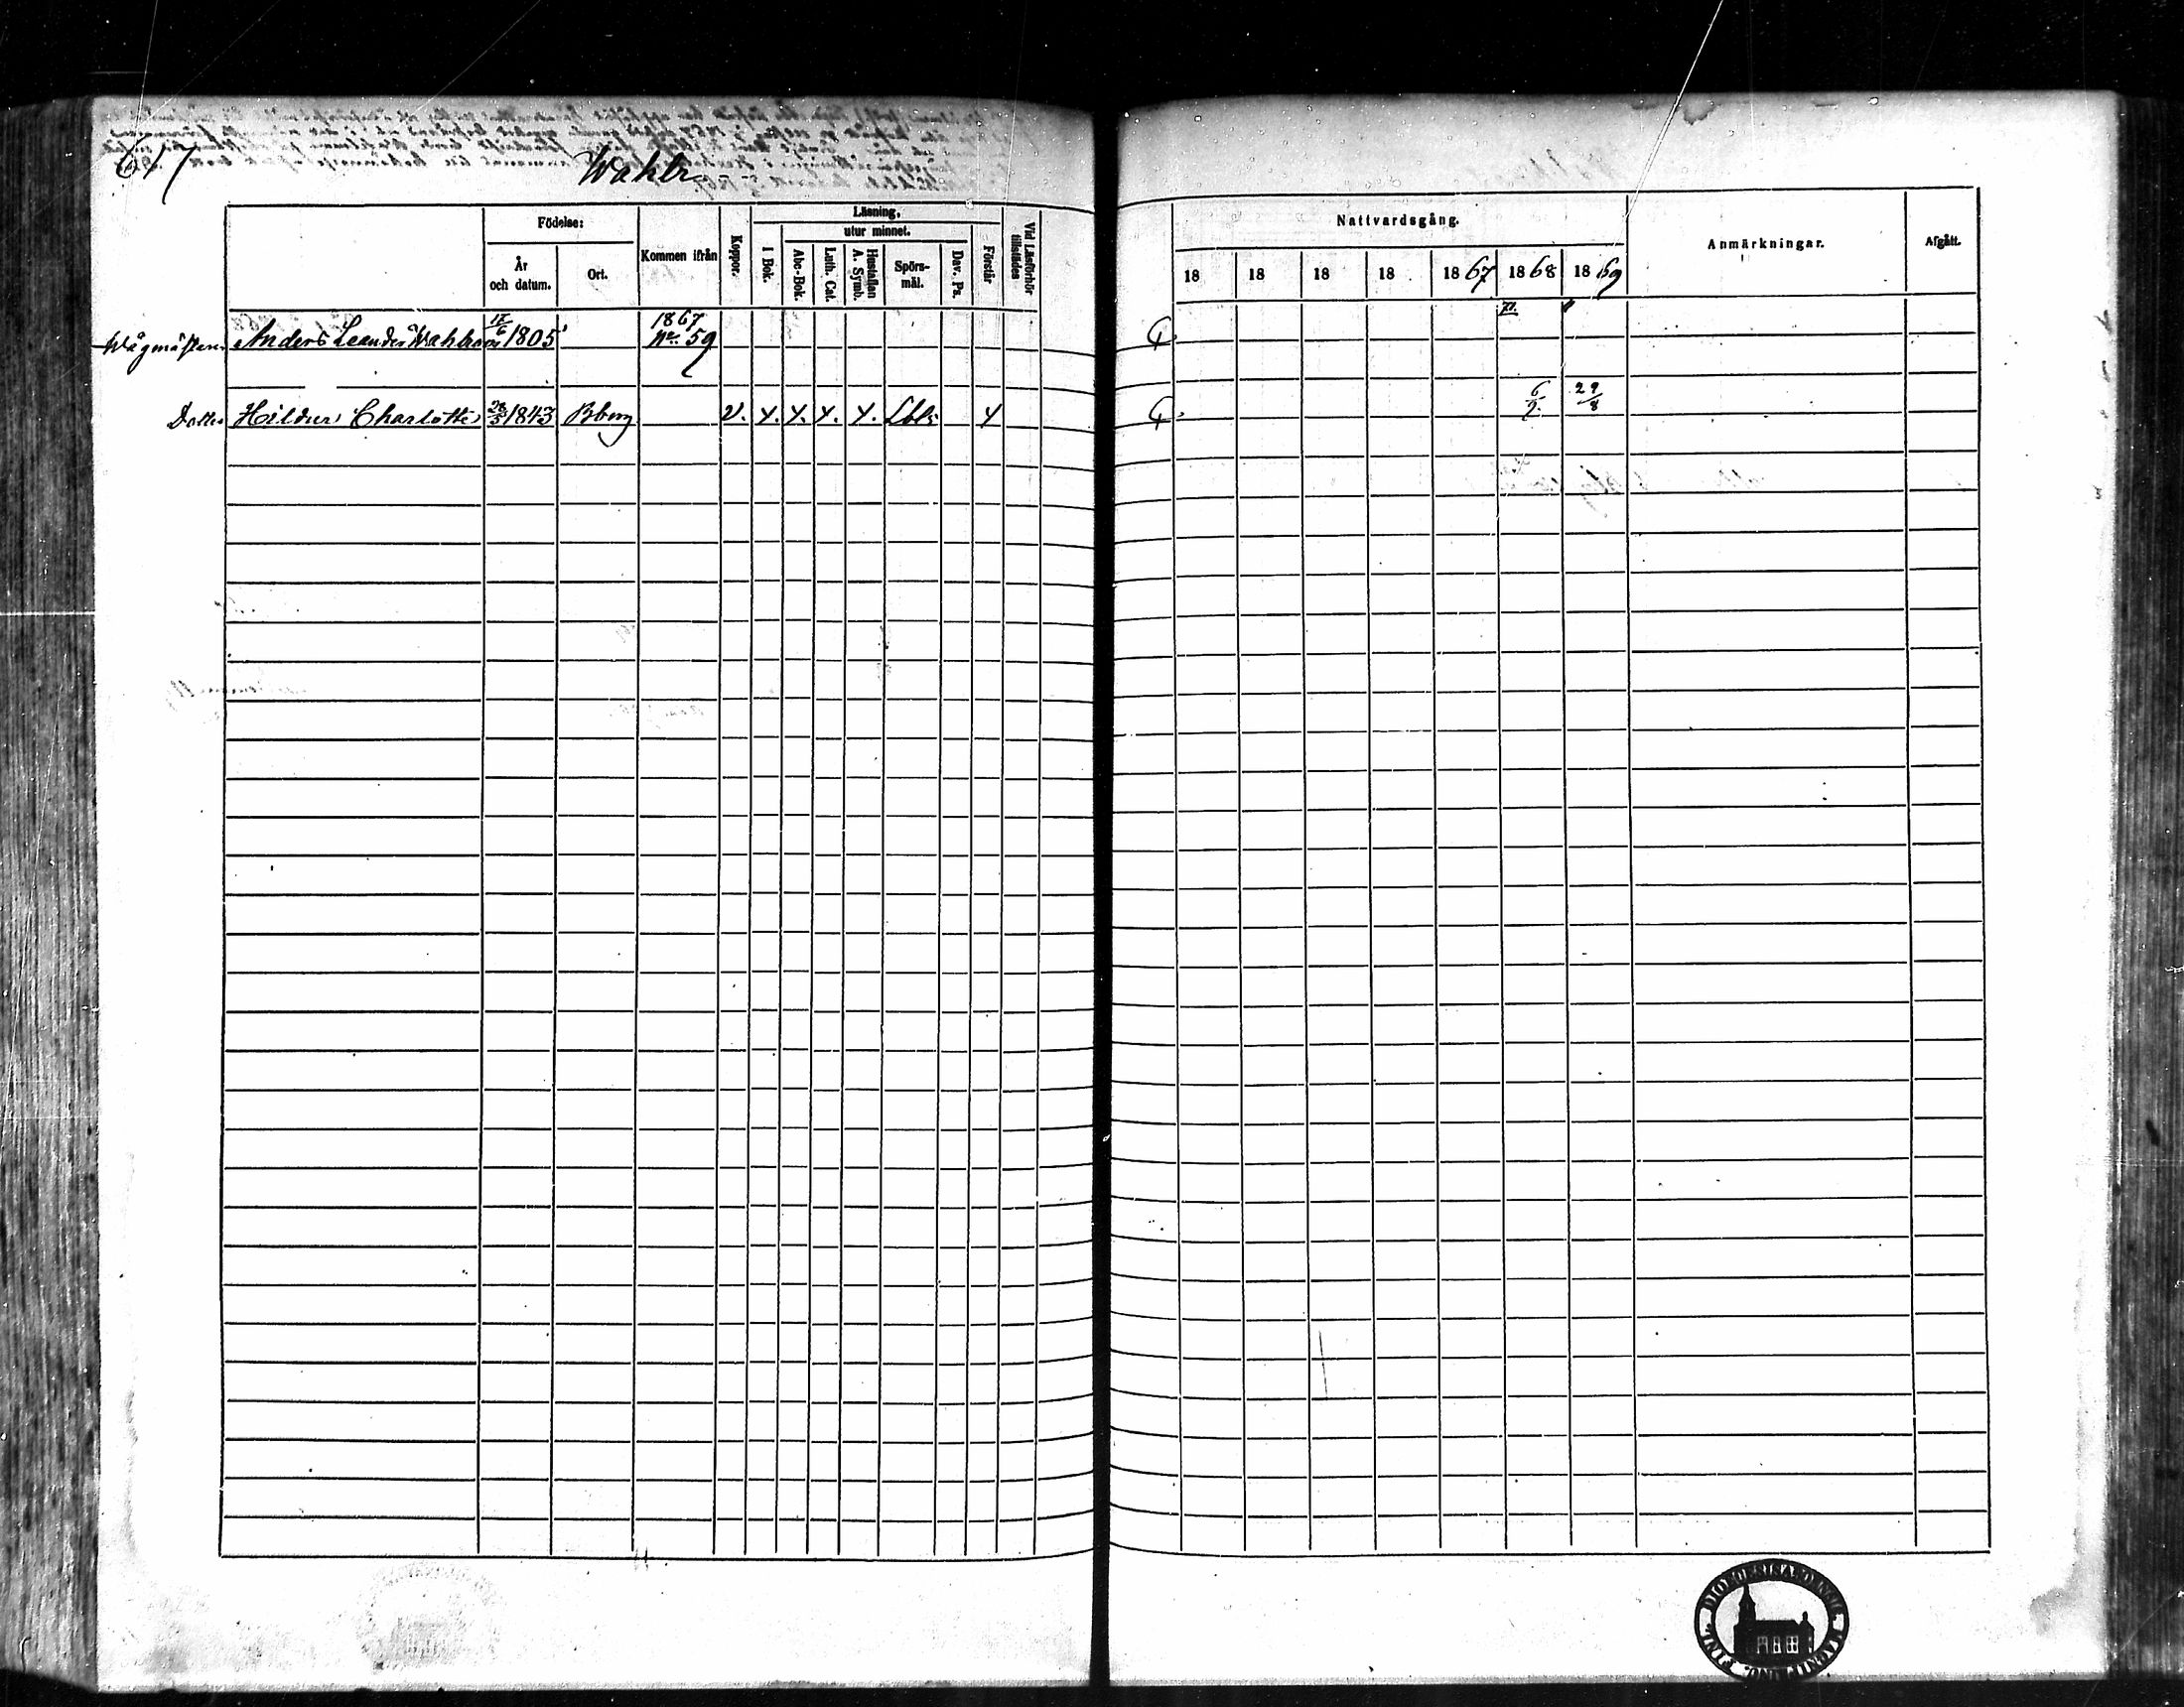 617
Wahlr
Födelse:
År och datum.
Ort.
Kommen ifrån
Koppor.
Läsning,
utur minnet.
I Bok.
Abc-Bok.
Luth. Cat.
Hustaflan A. Symb.
Spörs-mål.
Dav. Ps.
Förstår
Vid Läsförhör tillstädes
Nattvardsgång.
18 18 18 18 1867 1868 1869
Anmärkningar.
Afgått.
Wågmästaren Anders Leander 1805 1867 No. 59
Dotter Hildur Charlotte 28/3 1843 Bborg v. x. x. x. x. x 6/9. 29/8